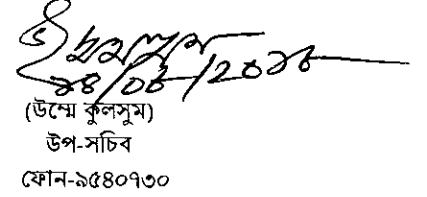 ১৪/০৫/২০১৮
(উম্মে কুলসুম)
উপ-সচিব
ফোন-৯৫৪০৭৩০